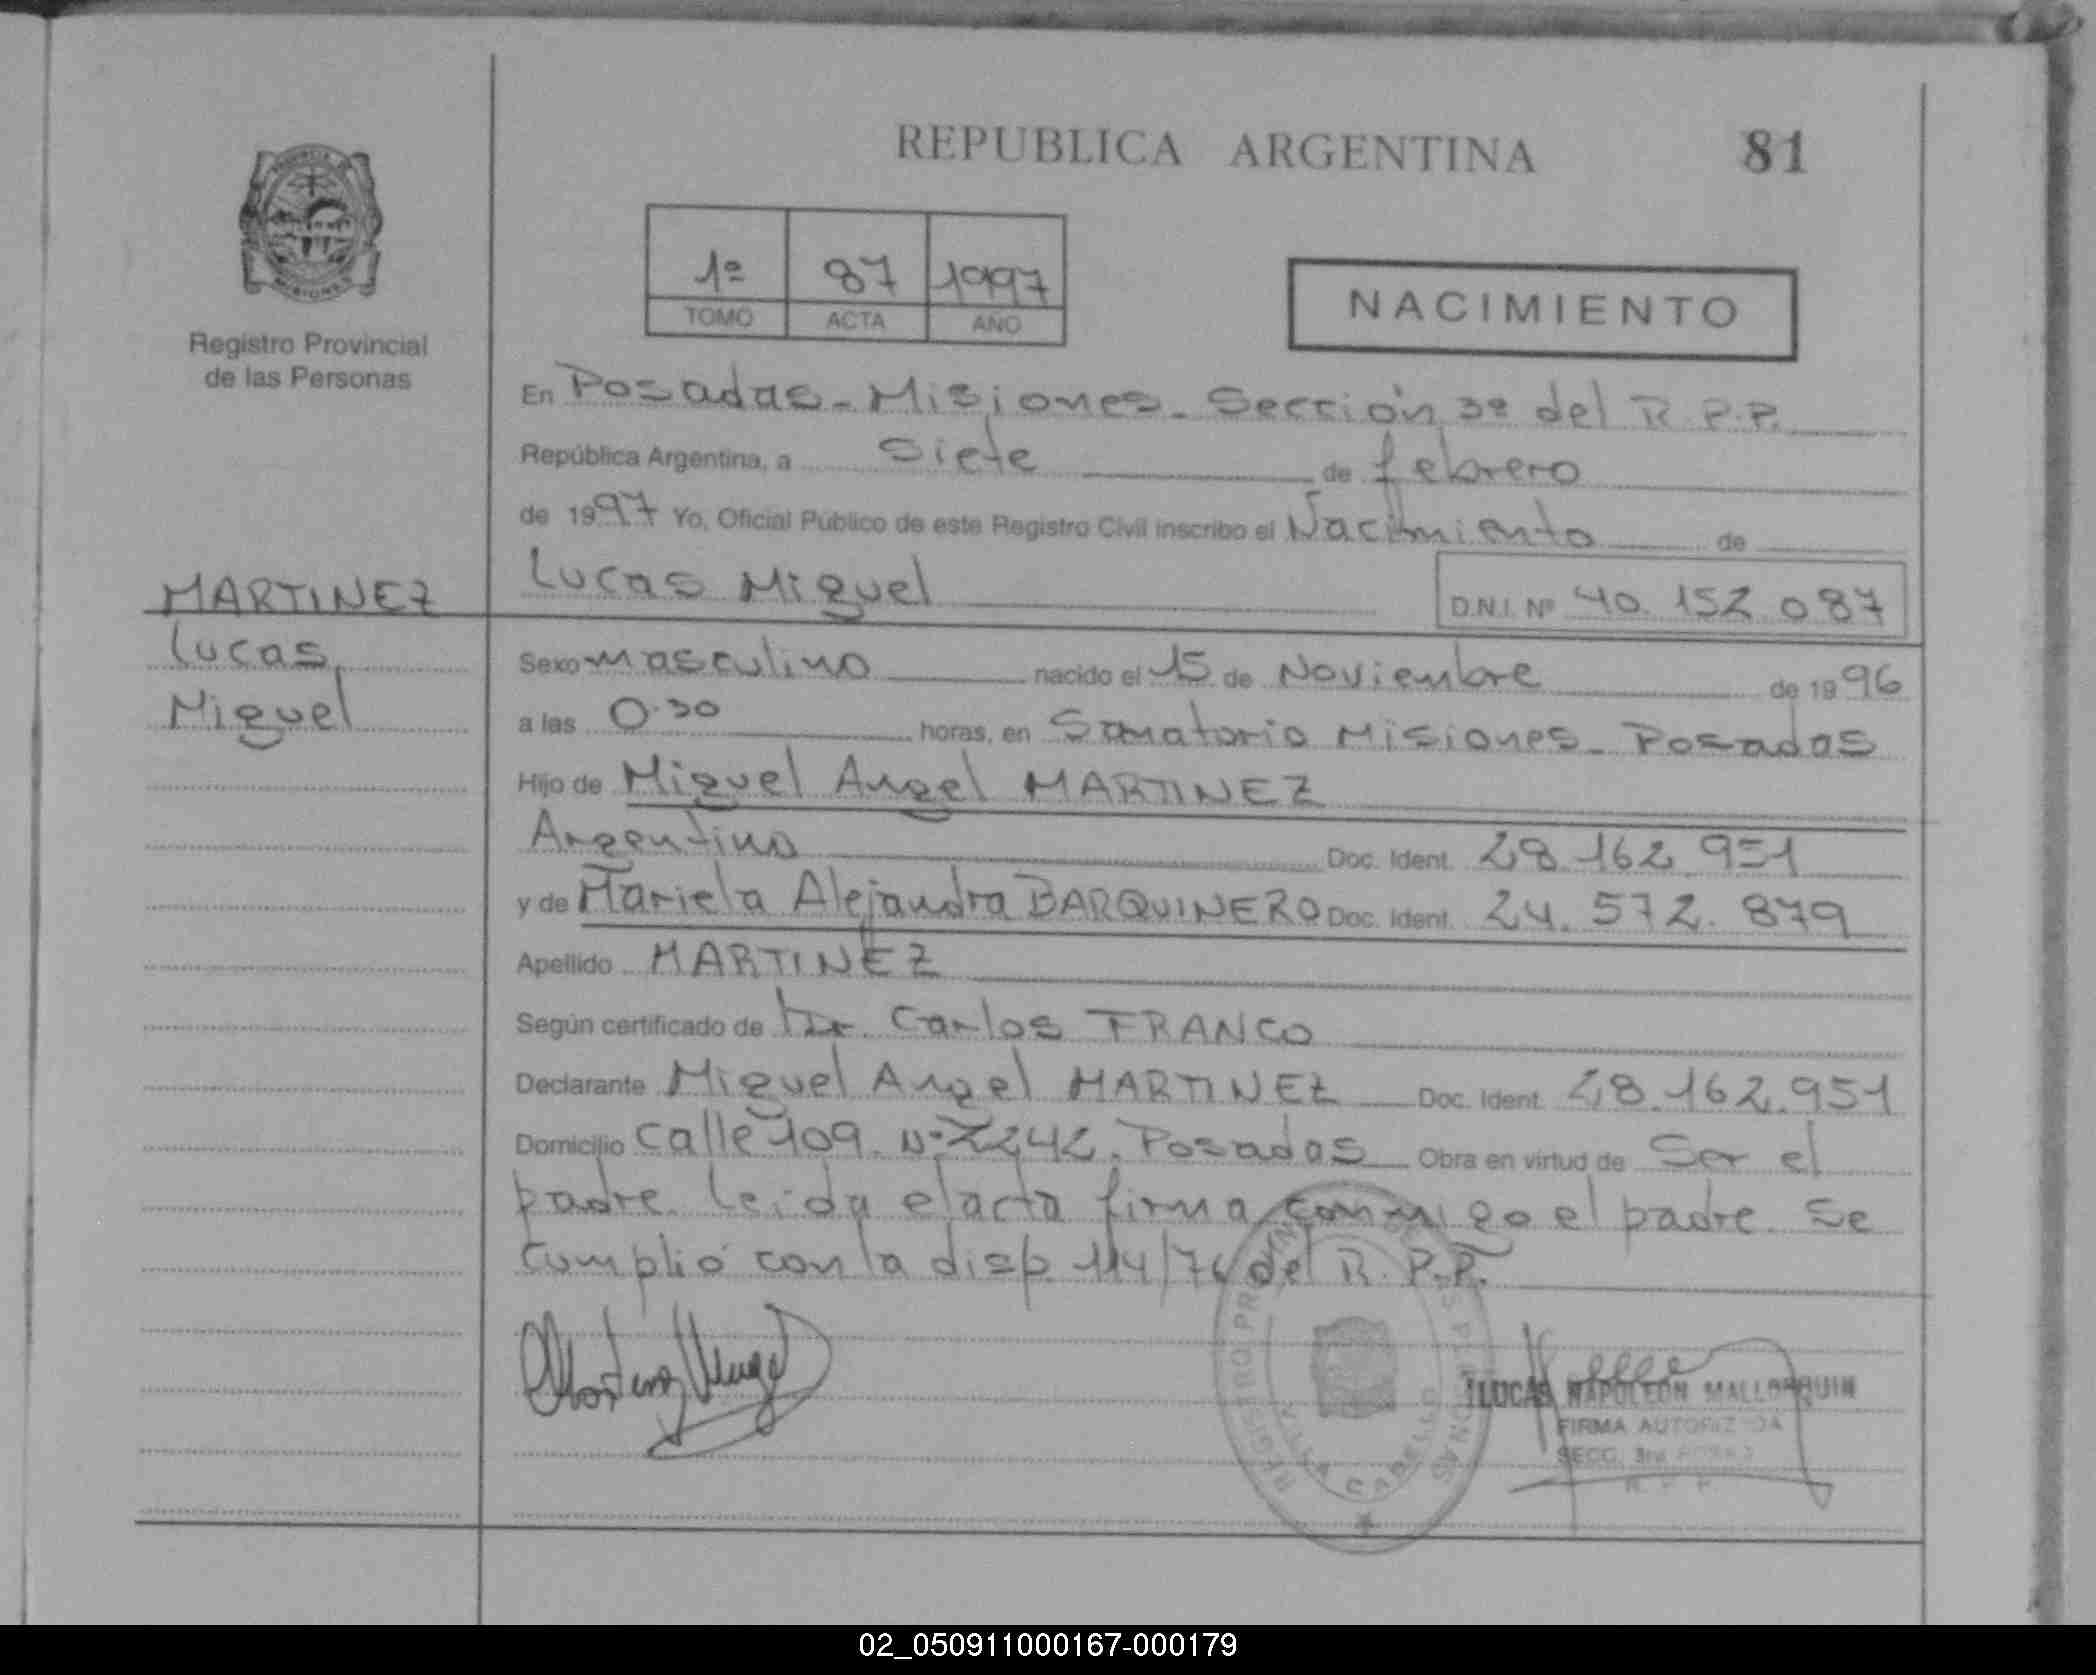 REPUBLICA ARGENTINA 81
1º 87 1997
TOMO ACTA AÑO
NACIMIENTO
Registro Provincial
de las Personas
En Posadas - Misiones - Sección 3ª del R.P.P.
República Argentina, a siete de febrero
de 1997 Yo, Oficial Público de este Registro Civil inscribo el Nacimiento de
Lucas Miguel D.N.I. Nº 40.152.087
MARTINEZ
Lucas
Miguel
Sexo masculino nacido el 15 de Noviembre de 1996
a las 0.30 horas, en Sanatorio Misiones - Posadas
Hijo de Miguel Angel MARTINEZ
Argentino Doc. Ident. 28.162.951
y de Mariela Alejandra BARQUINERO Doc. Ident. 24.572.879
Apellido MARTINEZ
Según certificado de Dr. Carlos FRANCO
Declarante Miguel Angel MARTINEZ Doc. Ident. 28.162.951
Domicilio calle 109. Nº 2242. Posadas Obra en virtud de Ser el
padre. Leída el acta firma conmigo el padre. Se
cumplió con la disp. 114/76 del R.P.P.
REGISTRO PROVINCIAL DE LAS PERSONAS
VILLA CABELLO
LUCAS NAPOLEON MALLORQUIN
FIRMA AUTORIZADA
SECC. 3ra POSADAS
R. P. P.
02_050911000167-000179